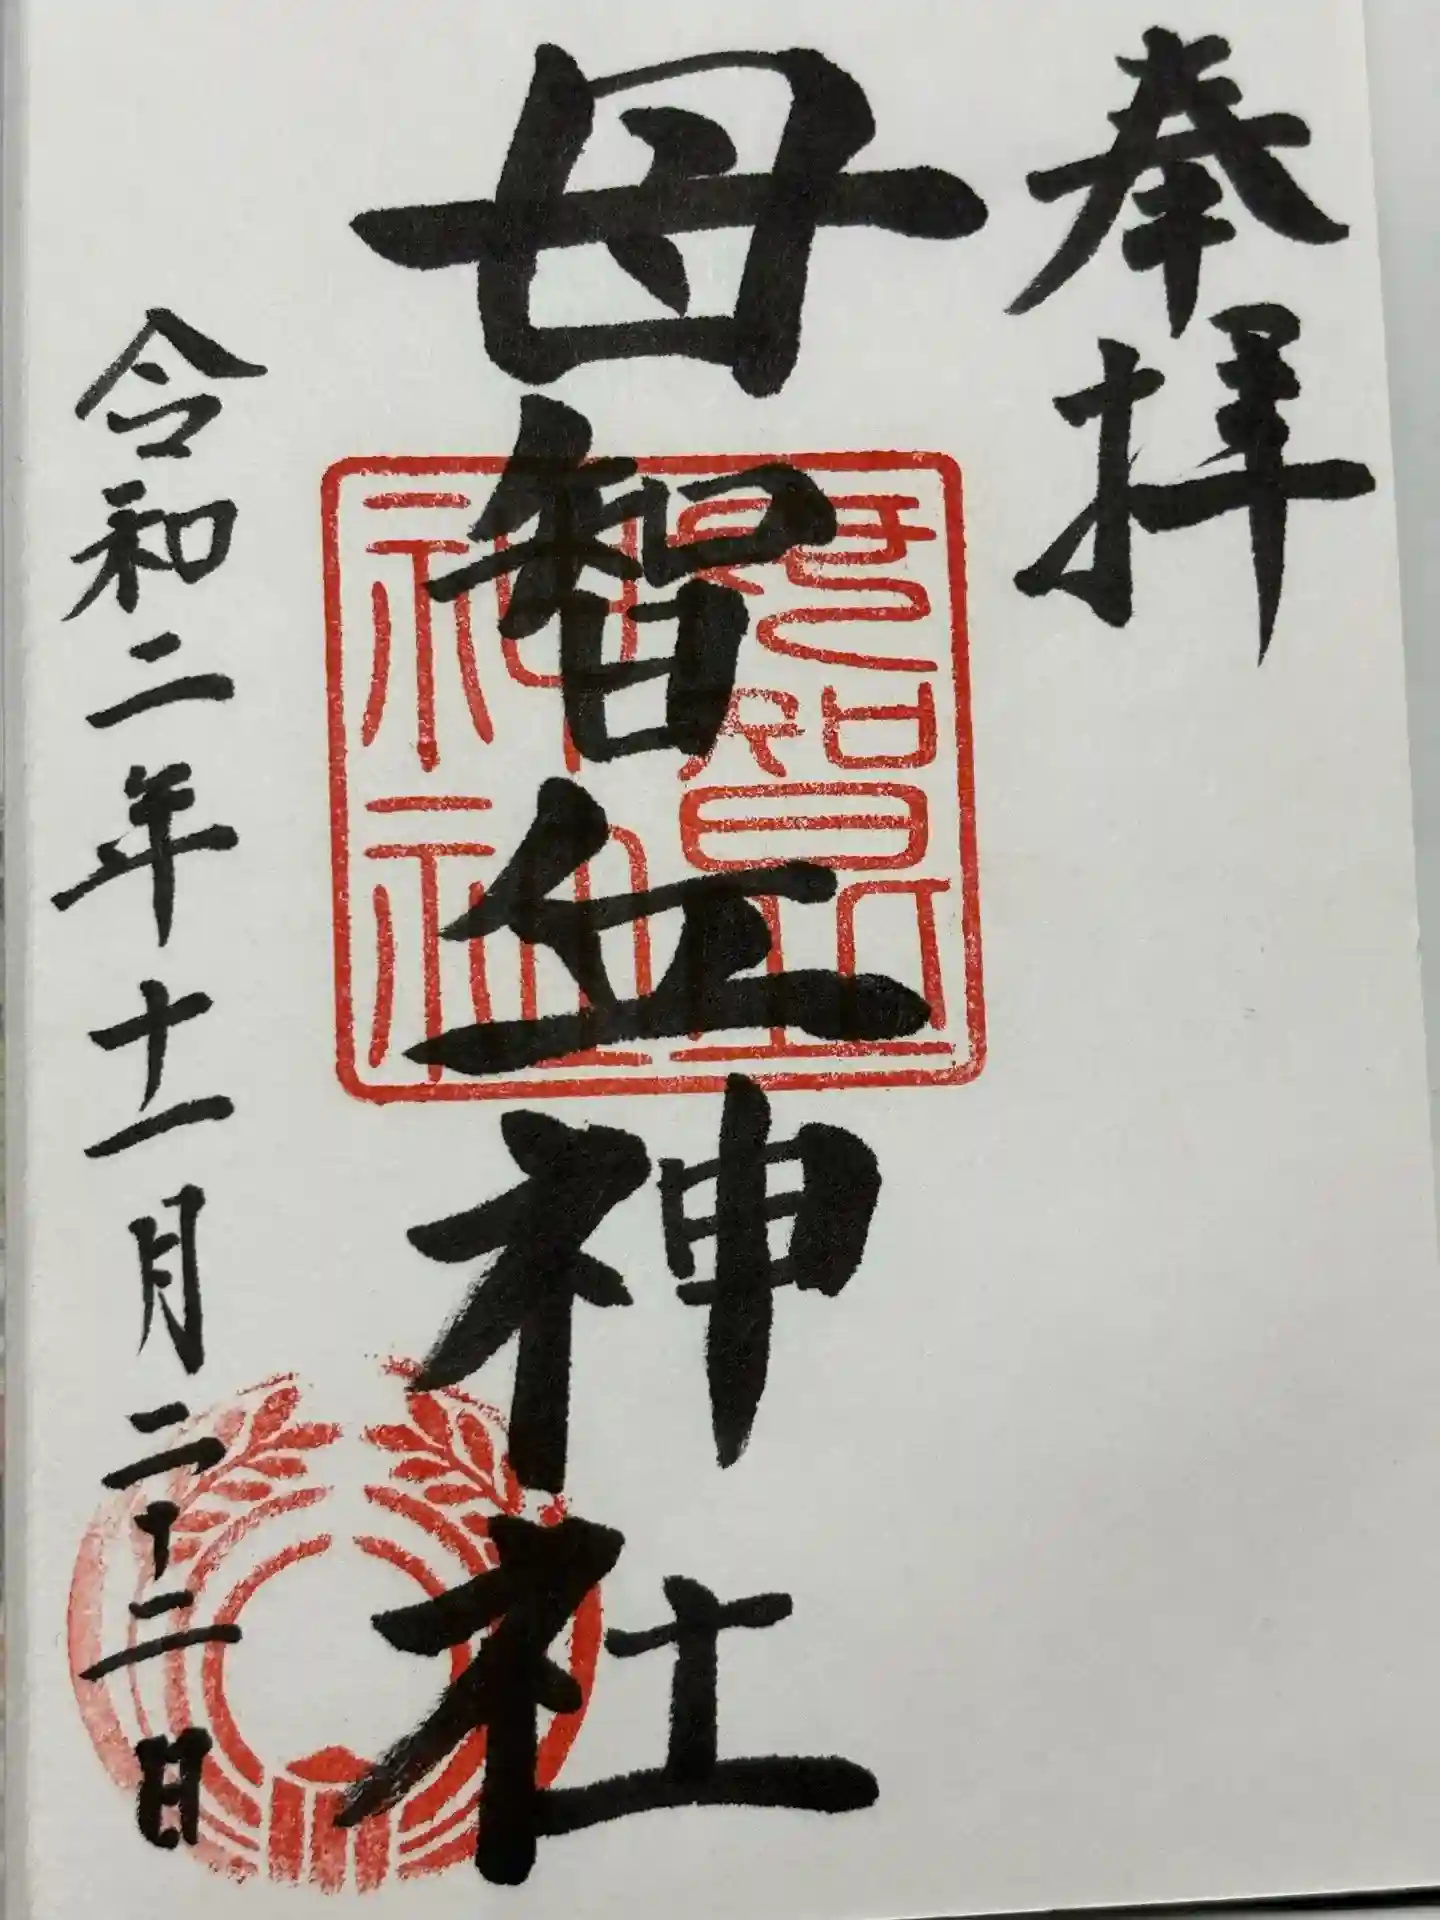 奉拝
母智丘神社
母智丘神社
令和二年十一月二十二日